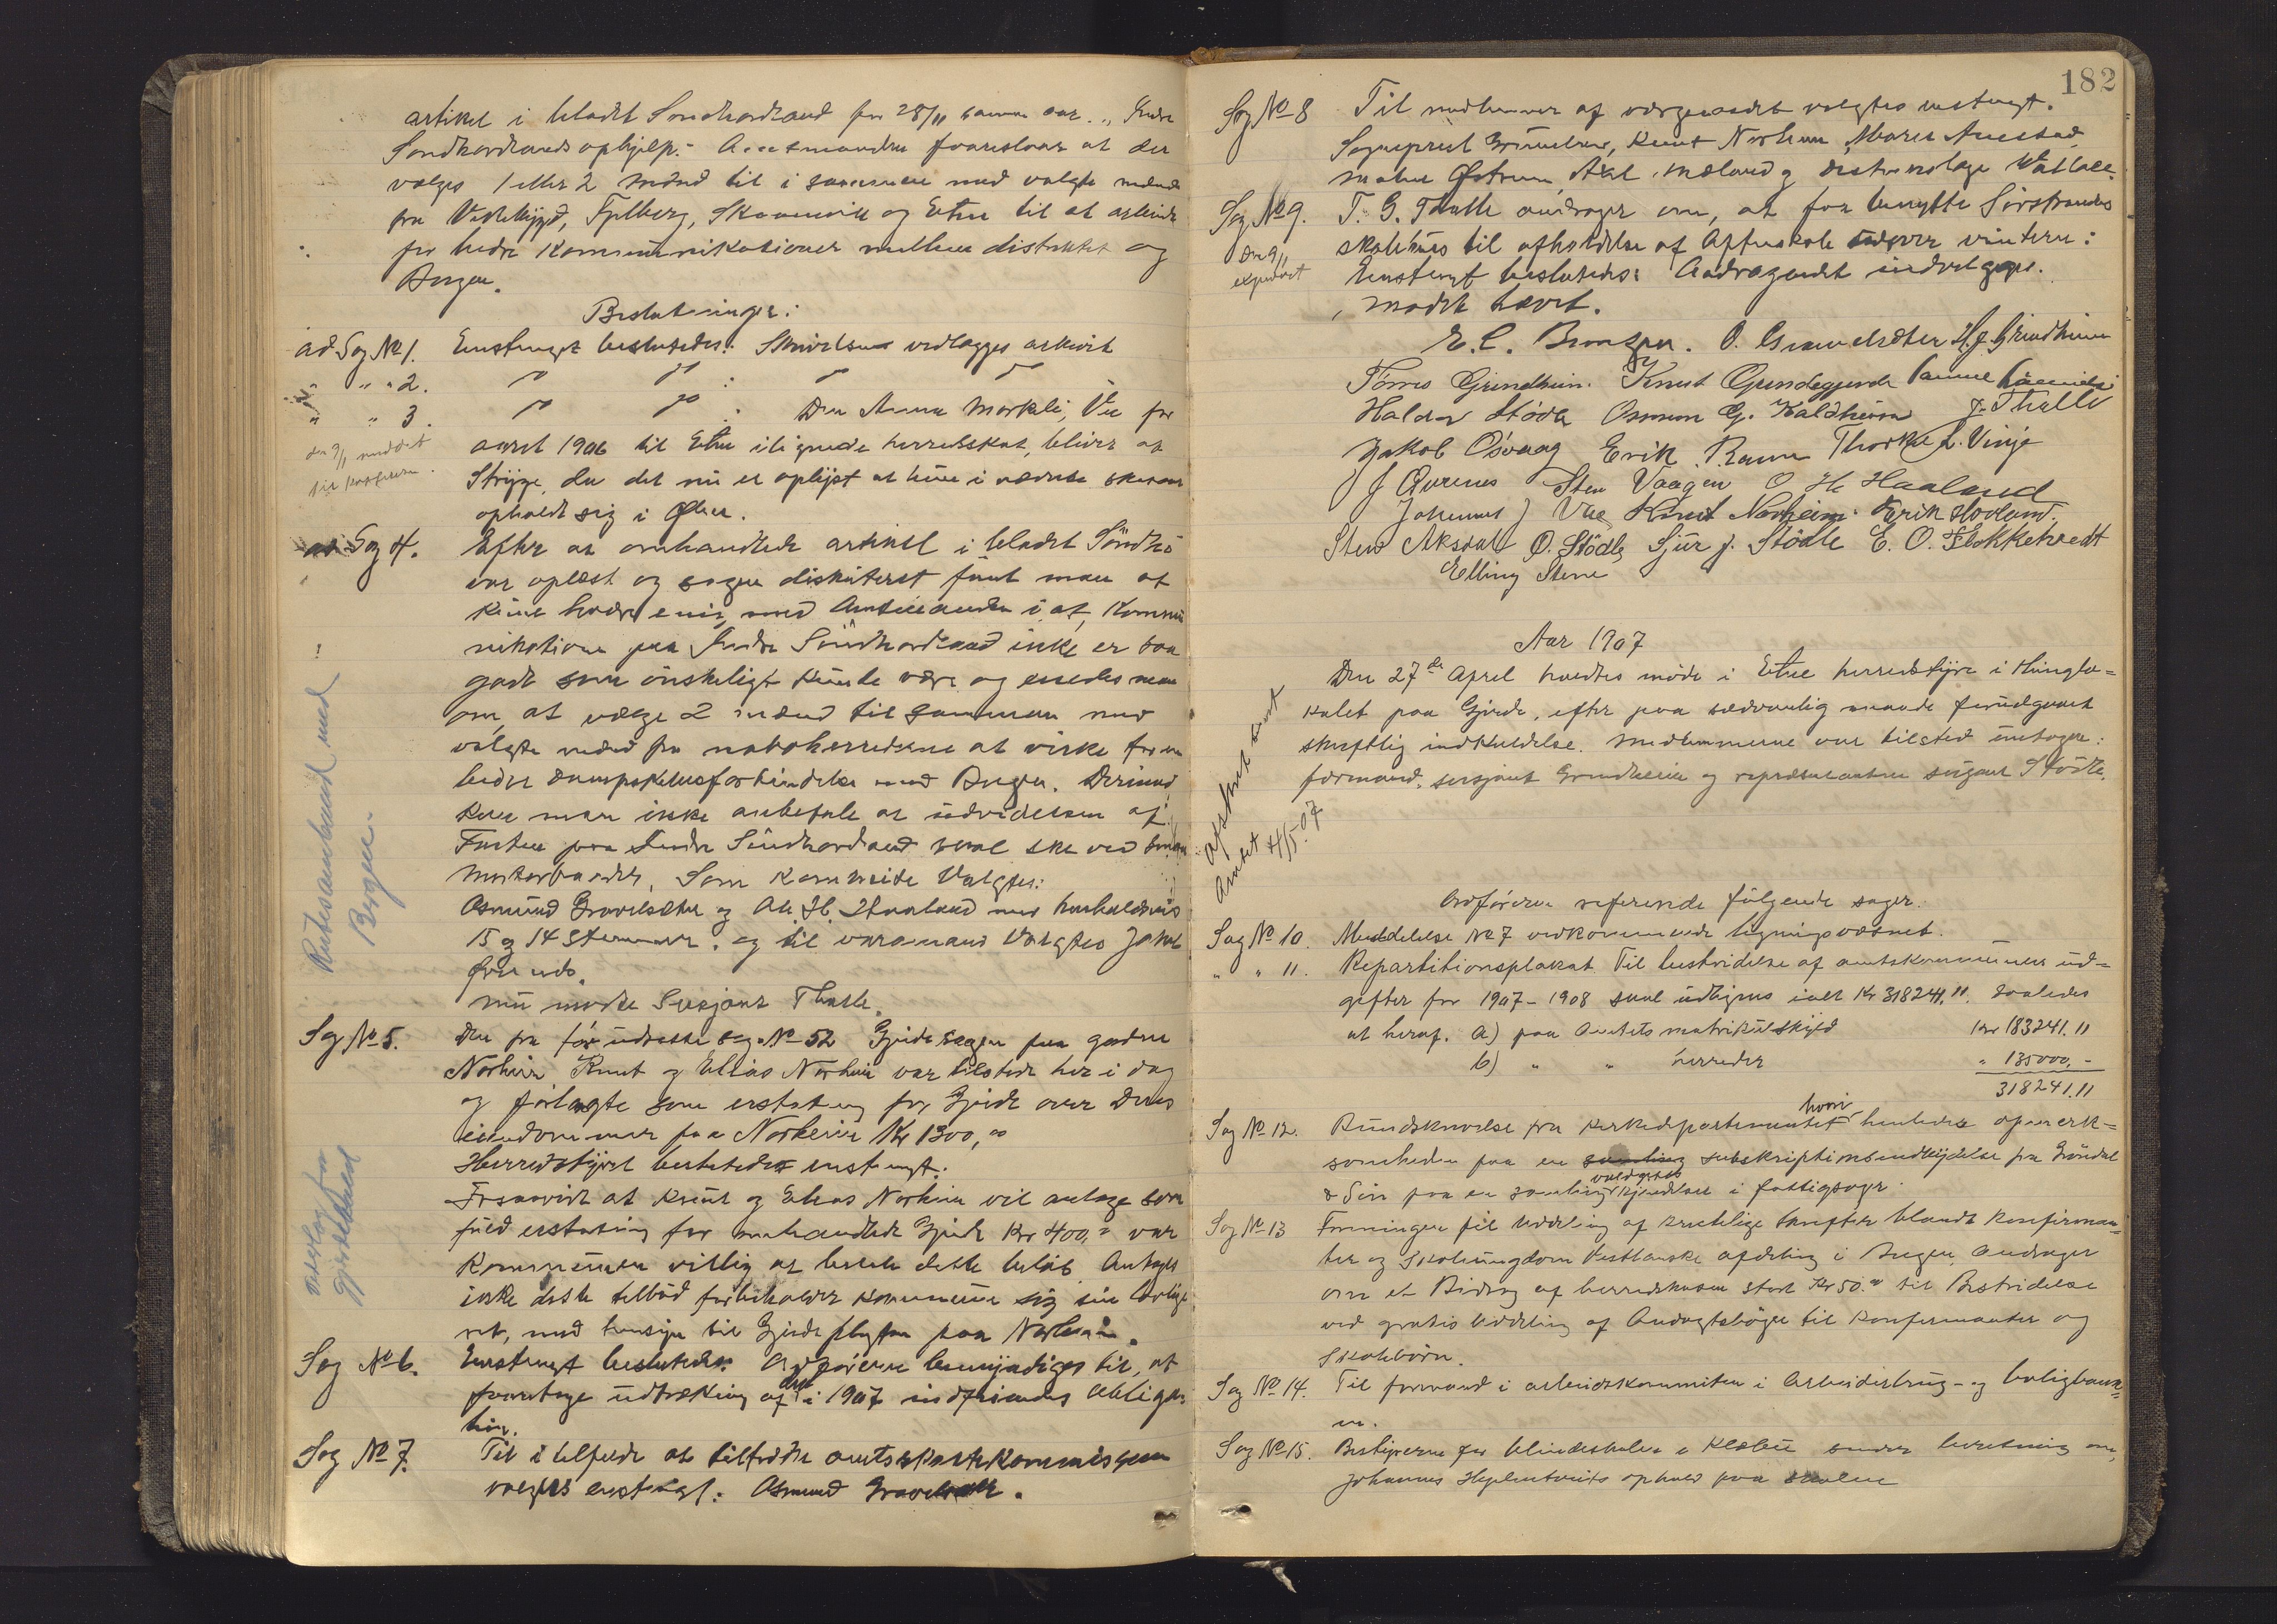 artikel i bladet Søndhordland for 28/11 samme aar. „Indre
Søndhordlands ophjelp." Amtmanden foreslaar at der
vælges 1 eller 2 mænd til i sammen med valgte mænd
fra Vikebygd, Fjelberg, Skaanevik og Etne til at arbeide
for bedre Kommunikationer mellem distriktet og
Bergen.
Beslutninger:
ad Sag No 1. Enstemmigt besluttedes: Skrivelsen vedlægges arkivet
" " " 2. " " : " "
" " 3. " " : Den Anna Markli, Vie for
den 9/1 meddelt
til kasserern.
aaret 1906 til Etne ilignede herredsskat, bliver at
Stryge, da det nu er oplyst at hun i nævnte skatteaar
opholdt sig i Ølen.
ad Sag 4. Efter at omhandlede artikel i bladet Søndho
var oplæst og sagen diskuteret fant man at
kunne være enig med Amtmanden i at Kommu
nikationen paa Indre Søndhordland ikke er saa
godt som ønskeligt kunde være og enedes man
om at vælge 2 mænd til sammen med
valgte mænd fra naboherrederne at virke for en
bedre dampskibsforbindelse med Bergen. Derimod
kan man ikke anbefale at udvidelsen af
Farten paa Indre Søndhordland skal ske ved smaa
motorbaader. Som Komiteide Valgtes:
Rutesamband med
Bergen.
Osmund Grovelsæter og Ole H. Haaland med henholdsvis
15 og 14 Stemmer. og til varamand Valgtes Jakob
Øvrenes.
nu mødte Sersjant Thalle.
Sag No 5. Den fra før udsatte sag No 52 Gjerdesagen paa gaarden
Norheim Knut og Elias Norheim var tilstede her i dag
og forlangte som erstatning for Gjerde over deres
eiendommer paa Norheim Kr 1300,00
Herredstyret besluttedes enstemmigt.
Forsaavidt at Knut og Elias Norheim vil antage som
fuld erstatning for omhandlede Gjerde Kr 400,00 var
Kommunen villig at betale dette beløb. Antages
ikke dette tilbud forbeholder Kommunen sig sin lovlige
ret, med hensyn til Gjerdeplygten paa Norheim.
overlag fra
gjerdehald
Sag No 6. Enstemmigt besluttedes. Ordføreren bemyndiges til, at
foretage udtrækning af det i 1907 indfriende obliga-
tion.
Sag No 7. Til i tilfelde at tiltrædte amtsskattekommisjonen
valgtes enstemmigt: Osmund Grovelsæter.
182
Sag No 8 Til medlemmer af værgeraadet valgtes enstemgt.
Sogneprest Grimelund, Knut Norheim, Maren Amestad,
Malene Østrem, Aksl Mæland og distriktslæge Wallace.
Sag No 9. T. G. Thalle andrager om, at faa benytte Sørstrandes
skolehus til afholdelse af Aftenskole udover vinteren:
den 9/1
expederet
Enstemgt besluttedes: Andragendet indvilgges.
Mødet hævet.
E. C. Bronzen. O. Grovelsæter H. J. Grindheim
Tørres Grindheim. Knut Grindegjerde
Haldor Stødle Osmun G. Kaldheim J. Thalle
Jakob Osvaag Erik Ravn Thorkel L. Vinje
J Øvrenes Sten Vaagen O. H. Haaland
Johannes J Vae Knut Norheim. Erik Hovland.
Sten Aksdal O. Stødle Sjur J. Stødle E. O. Flokketvedt
Elling Stene
Aar 1907
Den 27de April holdtes møde i Etne herredstyre i Thinglo=
kalet paa Gjerde, efter paa sædvanlig maade forudgaaet
skriftlig indkaldelse. Medlemmerne var tilsted undtagen:
formand, sersjant Grindheim og repræsentanten sergeant Stødle.
afskrift sendt
Amtet 4/5.07
Ordføreren referende følgende sager.
Sag No 10. Meddelelse No 7 vedkommende ligningsvæsnet.
" " 11. Repartitionsplakat. Til bestridelse af amtskommunens ud=
gifter for 1907-1908 skal udlignes ialt Kr 318241.11. saaledes
at heraf. a) paa Amtets matrikulskyld Kr 183241.11
b) " " herreder " 135000.-
318241.11
Sag No 12. Rundskrivelse fra Kirkedepartementet hvori henledes opmerk=
somheden paa en samling subskriptionsindbydelse fra Grøndal
& Søn paa en samling voldgifts kjendelser i fattigsager.
Sag No 13 Foreningen til Uddeling af kristelige skrifter blandt Konfirman-
ter og Skoleungdom Vestlanske afdeling i Bergen, andrager
om et Bidrag af herredskassen stort Kr 50.00 til Bestridelse
ved gratis Uddeling af Andagtsbøger til Konfirmanter og
Skolebørn.
Sag No 14. Til formand i arbeidskommiten i Arbeiderbrug- og boligbank=
en.
Sag No 15. Bestyrerne for blindeskolen i Klæbu sender beretning om,
Johannes ophold paa skolen